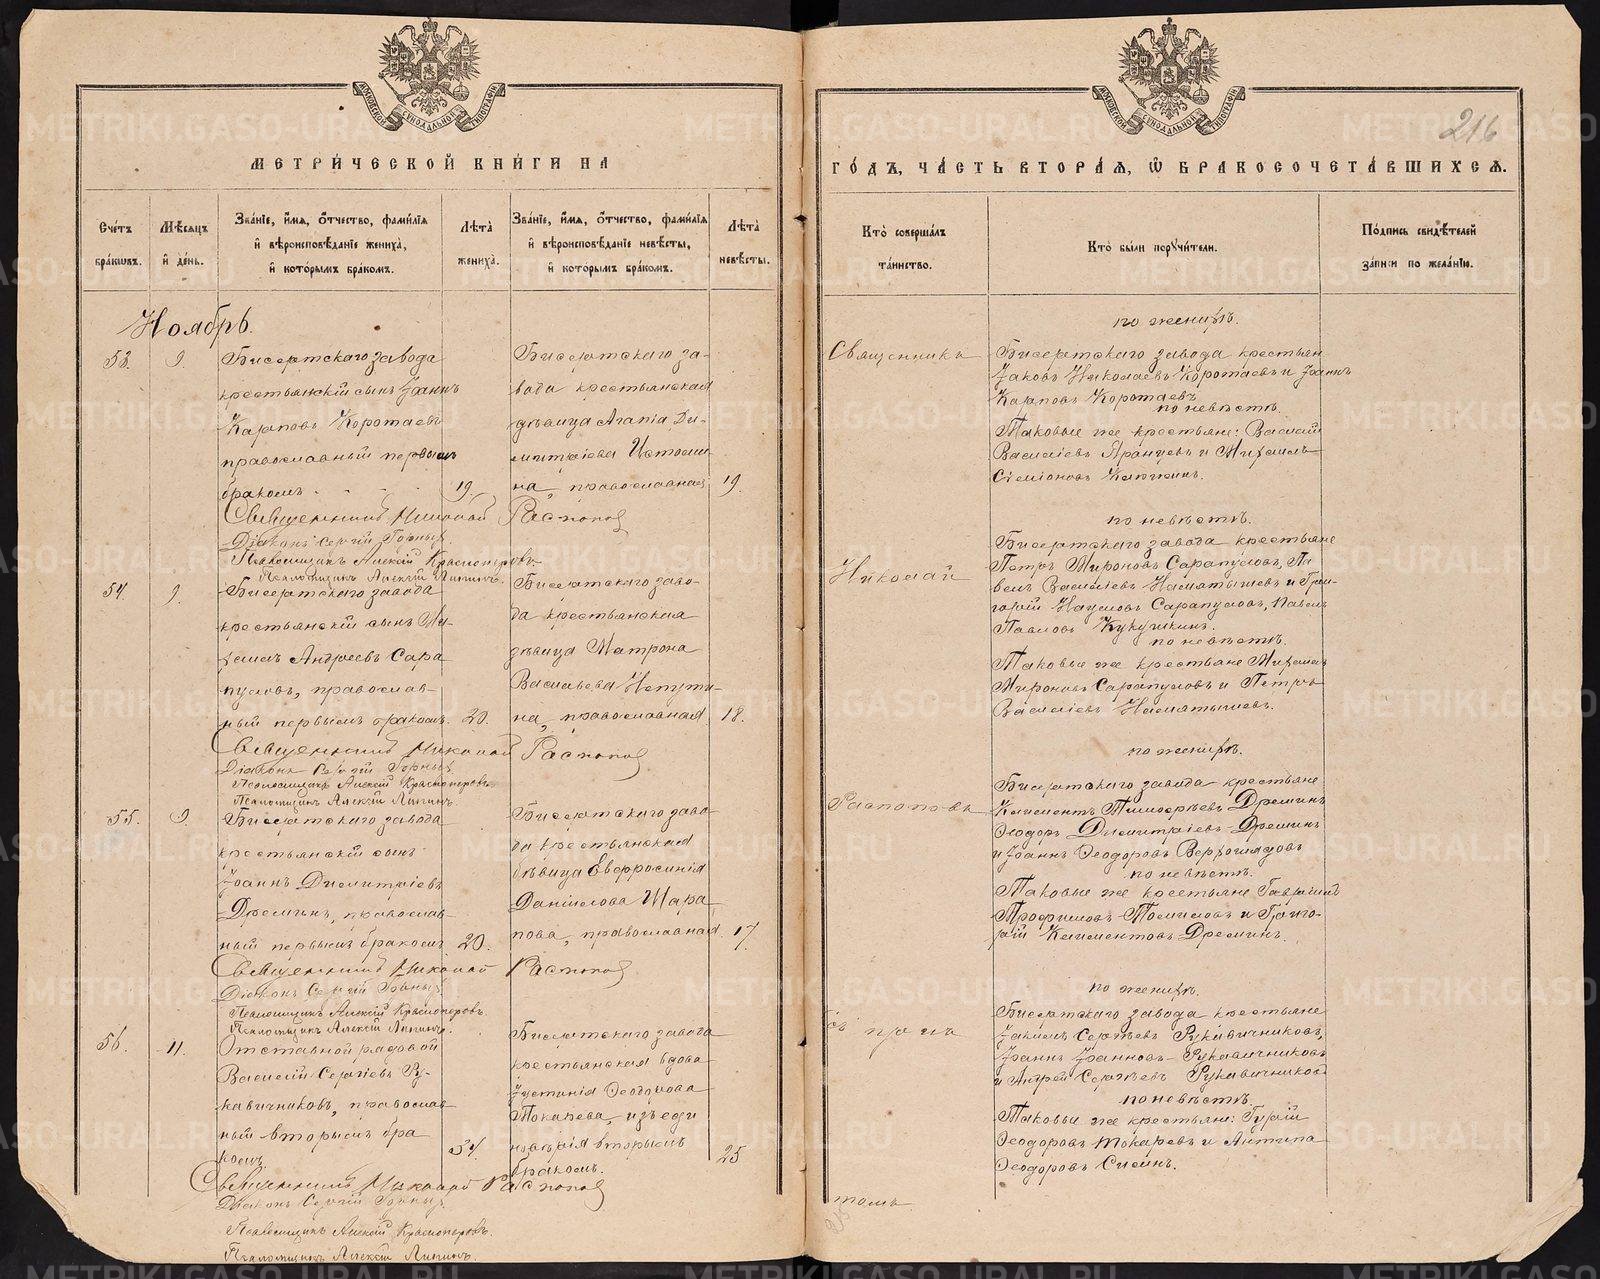 МЕТРИ́ЧЕСКОЙ КНИ́ГИ НА
ГО́ДЪ, ЧА́СТЬ ВТОРА́Я, Ѡ БРАКОСОЧЕТА́ВШИХСЯ.
216
Сче́тъ бра́кѡвъ.
Мѣ́сяцъ и҆ де́нь.
Зва́нїе, и҆́мя, ѻ҆́тчество, фами́лїя и҆ вѣроисповѣ́данїе жениха̀, и҆ кото́рымъ бра́комъ.
Лѣ́та жениха̀.
Зва́нїе, и҆́мя, ѻ҆́тчество, фами́лїя и҆ вѣроисповѣ́данїе невѣ́сты, и҆ кото́рымъ бра́комъ.
Лѣ́та невѣ́сты.
Кто̀ соверша́лъ та́инство.
Кто̀ бы́ли поручи́тели.
По́дпись свидѣ́телей за́писи по жела́нїю.
Ноябрь.
53.
9.
Бисертскаго завода
крестьянскій сынъ Іоаннъ
Карповъ Коротаевъ
православный первымъ
бракомъ
19.
Бисертскаго за-
вода крестьянская
дѣвица Агапія Ди-
митріева Истоми
на, православная
19.
Священникъ Николай Распопов
Діаконъ Сергій Горныхъ.
Псаломщикъ Алексій Красноперовъ
Псаломщикъ Алексій Липинъ.
54.
9.
Бисертскаго завода
крестьянскій сынъ Ми-
хаилъ Андреевъ Сара
пуловъ, православ-
ный первымъ бракомъ.
20.
Бисертскаго заво-
да крестьянская
дѣвица Матрона
Васильева
на, православная
18.
Священникъ Николай Распопов
Діаконъ Сергій Горныхъ
Псаломщикъ Алексій Красноперовъ
Псаломщикъ Алексій Липинъ
55.
9.
Бисертскаго завода
крестьянскій сынъ
Іоаннъ Димитріевъ
Дреминъ, православ-
ный первымъ бракомъ
20.
Бисертскаго заво-
да крестьянская
дѣвица Евфросинія
Даніилова Шара
пова, православная
17.
Священникъ Николай Распопов
Діаконъ Сергій Горныхъ
Псаломщикъ Алексій Красноперовъ.
Псаломщикъ Алексій Липинъ.
56.
11.
Отставной рядовой
Василій Сергіевъ Ру-
кавичниковъ, православ
ный вторымъ бра
комъ
34.
Бисертскаго завода
крестьянская вдова
Іустинія Ѳеодорова
Токарева, изъ еди
новѣрія вторымъ
бракомъ.
25
Священникъ Николай Распопов
Діаконъ Сергій Горныхъ
Псаломщикъ Алексій Красноперовъ.
Псаломщикъ Алексій Липинъ.
Священникъ
Николай
Распоповъ
съ прич
томъ
по женихѣ.
Бисертскаго завода крестьян
Іаковъ Николаевъ Коротаевъ и Іоаннъ
Карповъ Коротаевъ
по невѣстѣ.
Таковые же крестьяне: Василій
Василіевъ Яранцевъ и Михаилъ
Симіоновъ
по невѣстѣ.
Бисертскаго завода крестьяне
Петръ Мироновъ Сарапуловъ, Па
велъ Василіевъ и Гри-
горій Наумовъ Сарапуловъ, Павелъ
Павловъ Кукушкинъ.
по невѣстѣ.
Таковые же крестьяне Михаилъ
Мироновъ Сарапуловъ и Петръ
Василіевъ
по женихѣ.
Бисертскаго завода крестьяне
Климентъ Тимоѳеевъ Дреминъ
Ѳеодоръ Димитріевъ Дреминъ
и Іоаннъ Ѳеодоровъ Верхоглядовъ
по невѣстѣ.
Таковые же крестьяне Гавріилъ
Трофимовъ Томиловъ и Григо-
рій Климентовъ Дреминъ.
по женихѣ.
Бисертскаго завода крестьяне
Сергѣевъ Рукавичниковъ,
Іоаннъ Іоанновъ Рукавичниковъ
и Андрей Сергѣевъ Рукавичников
по невѣстѣ.
Таковые же крестьяне: Гурій
Ѳеодоровъ Токаревъ и Антипа
Ѳеодоровъ
METRIKI.GASO-URAL.RU